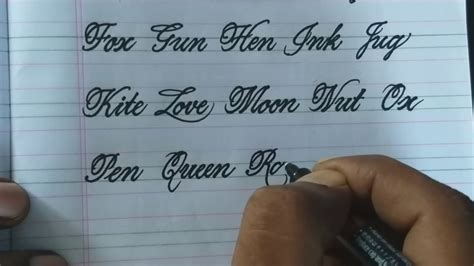 Fox Gun Hen Ink Jug
Kite Love Moon Nut Ox
Pen Queen Ro